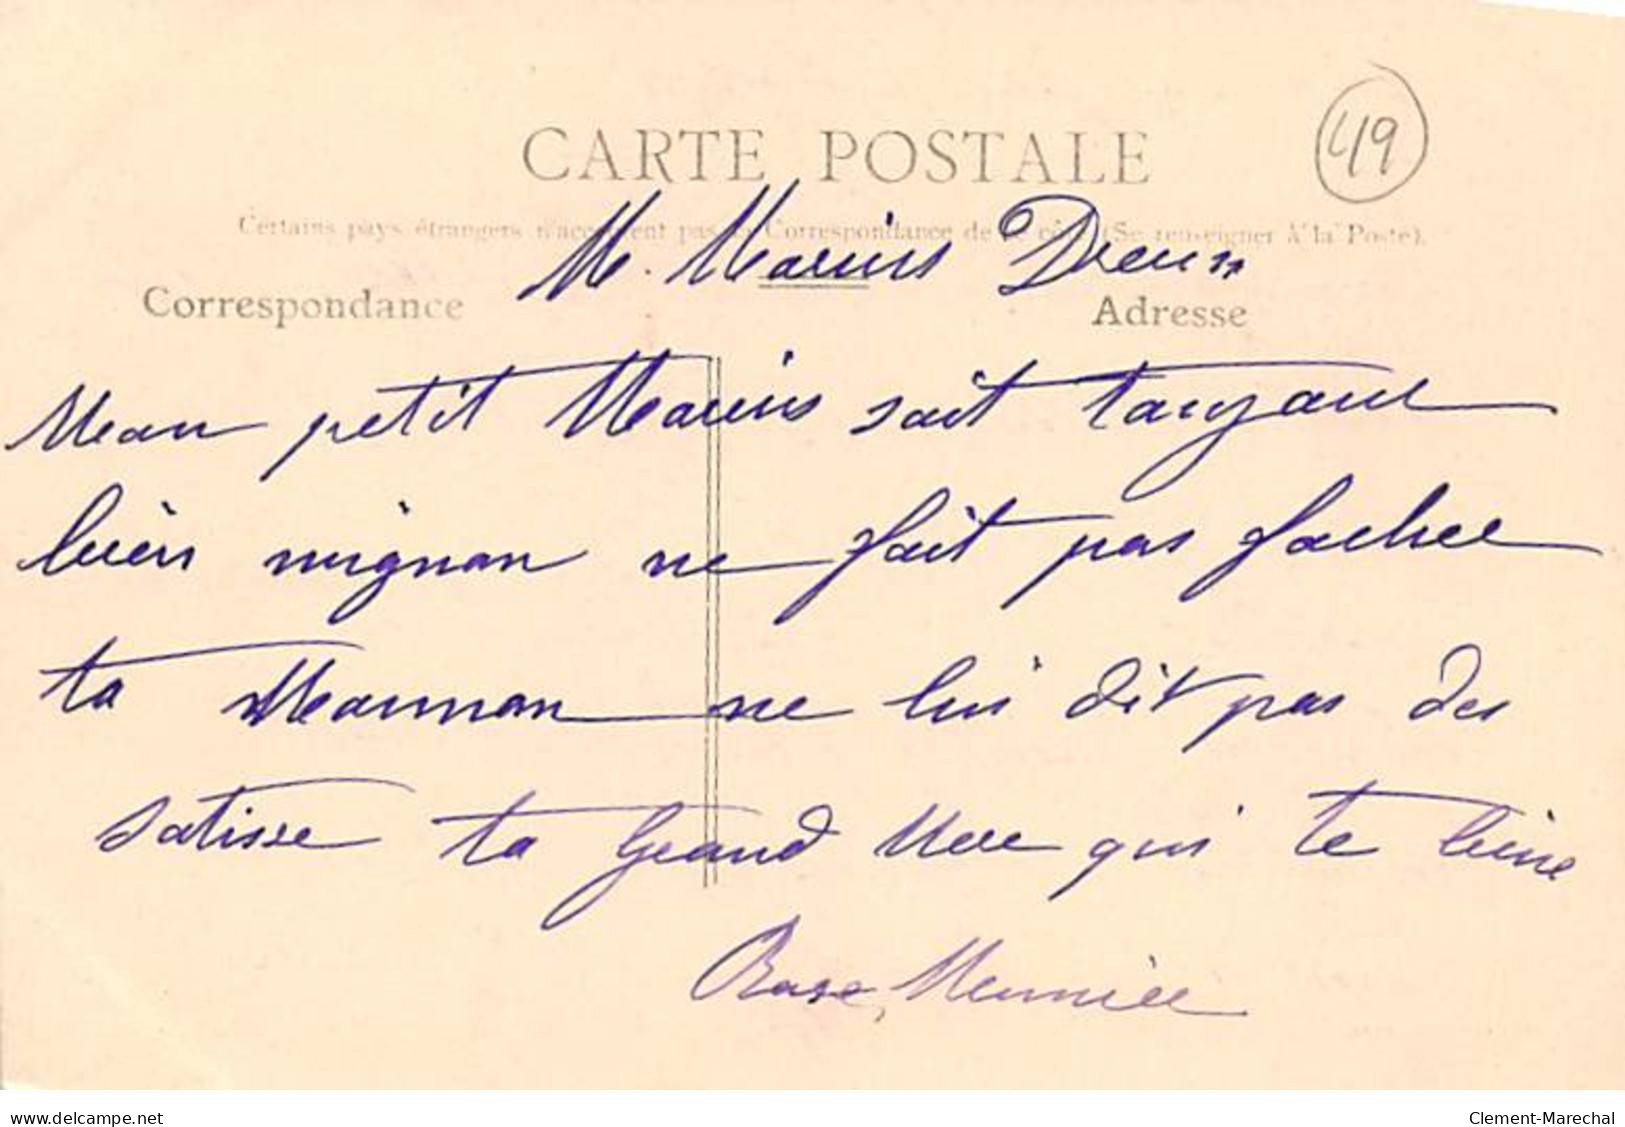 49
CARTE POSTALE
Certains pays étrangers n'acceptent pas la Correspondance de ce côté (Se renseigner à la Poste).
M. Marius Dreux
Correspondance
Adresse
Mon petit Marius soit
bien mignon ne fait pas fachee
ta Maman ne lui dit pas des
satisse ta Grand Mere qui te
Rose Meuniée
delcampe.net
Clement-Marechal